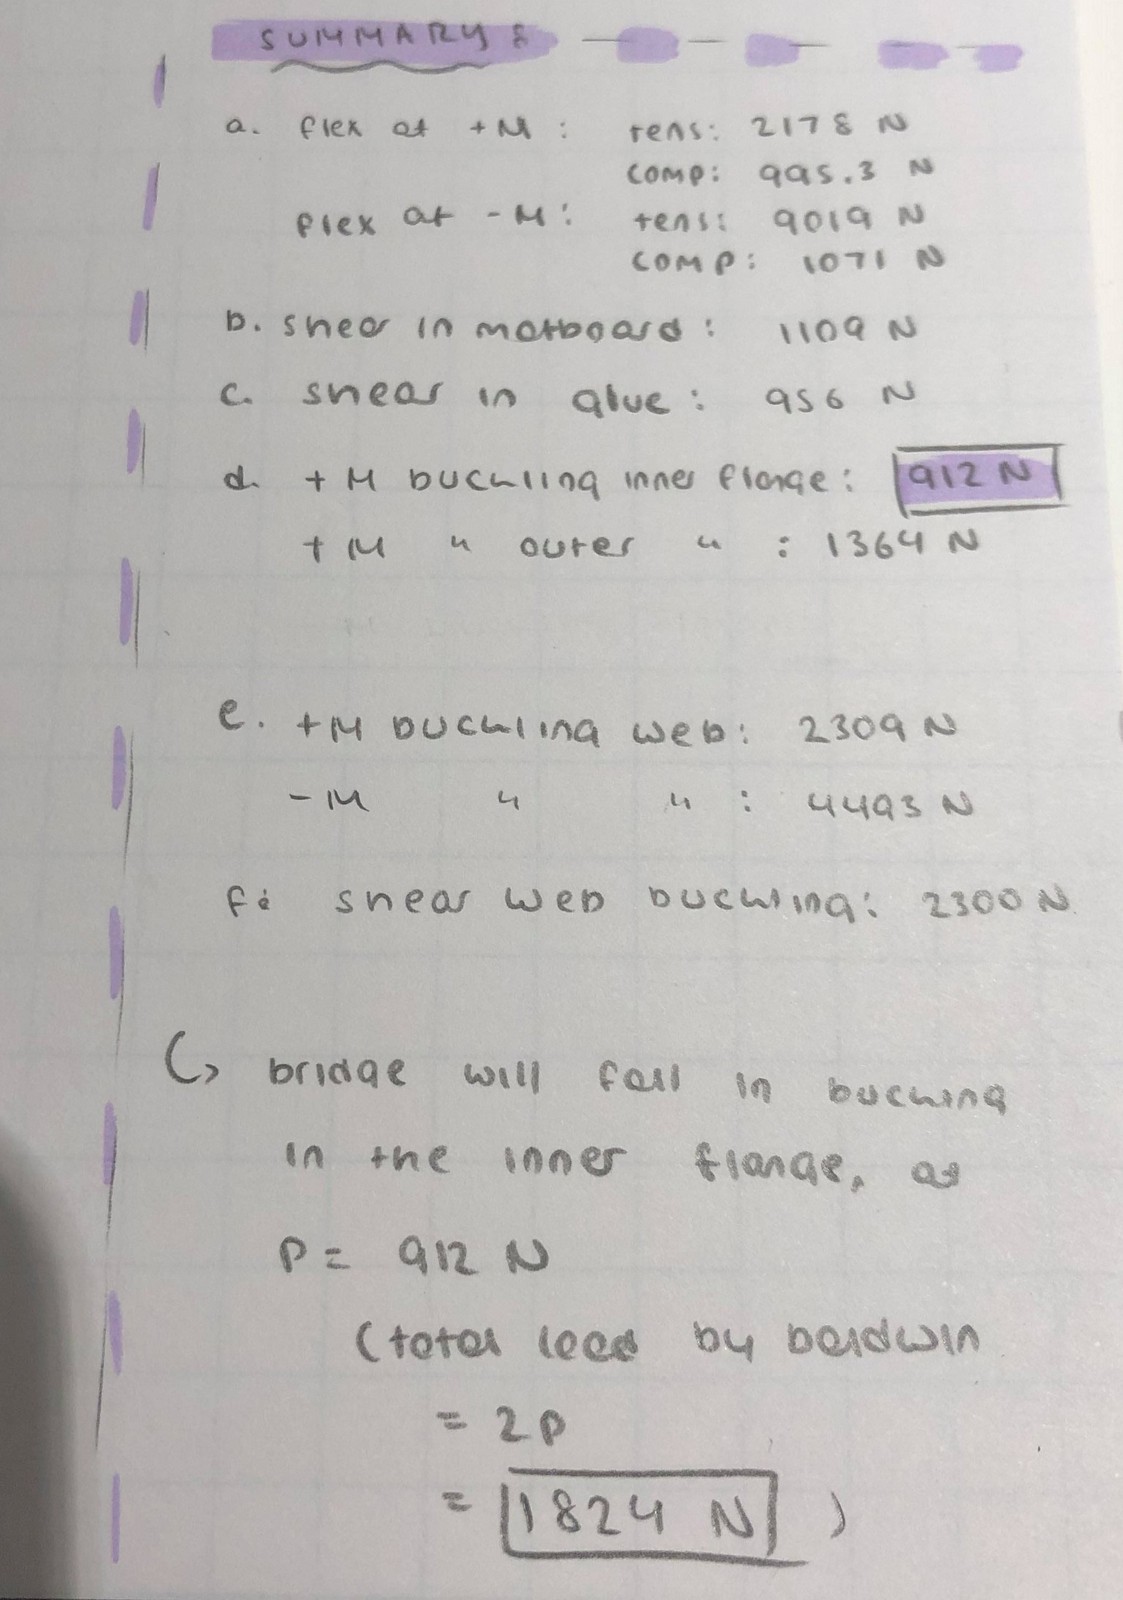 SUMMARY:
a. flex at +M : tens: 2178 N
comp: 995.3 N
flex at -M: tens: 9019 N
comp: 1071 N
b. shear in matboard: 1109 N
c. shear in glue: 956 N
d. +M buckling inner flange: 912 N
+M " outer " : 1364 N
e. +M buckling web: 2309 N
-M " " : 4493 N
f: shear web buckling: 2300 N
↳ bridge will fail in buckling
in the inner flange, at
P = 912 N
(total load by baldwin
= 2P
= 1824 N )